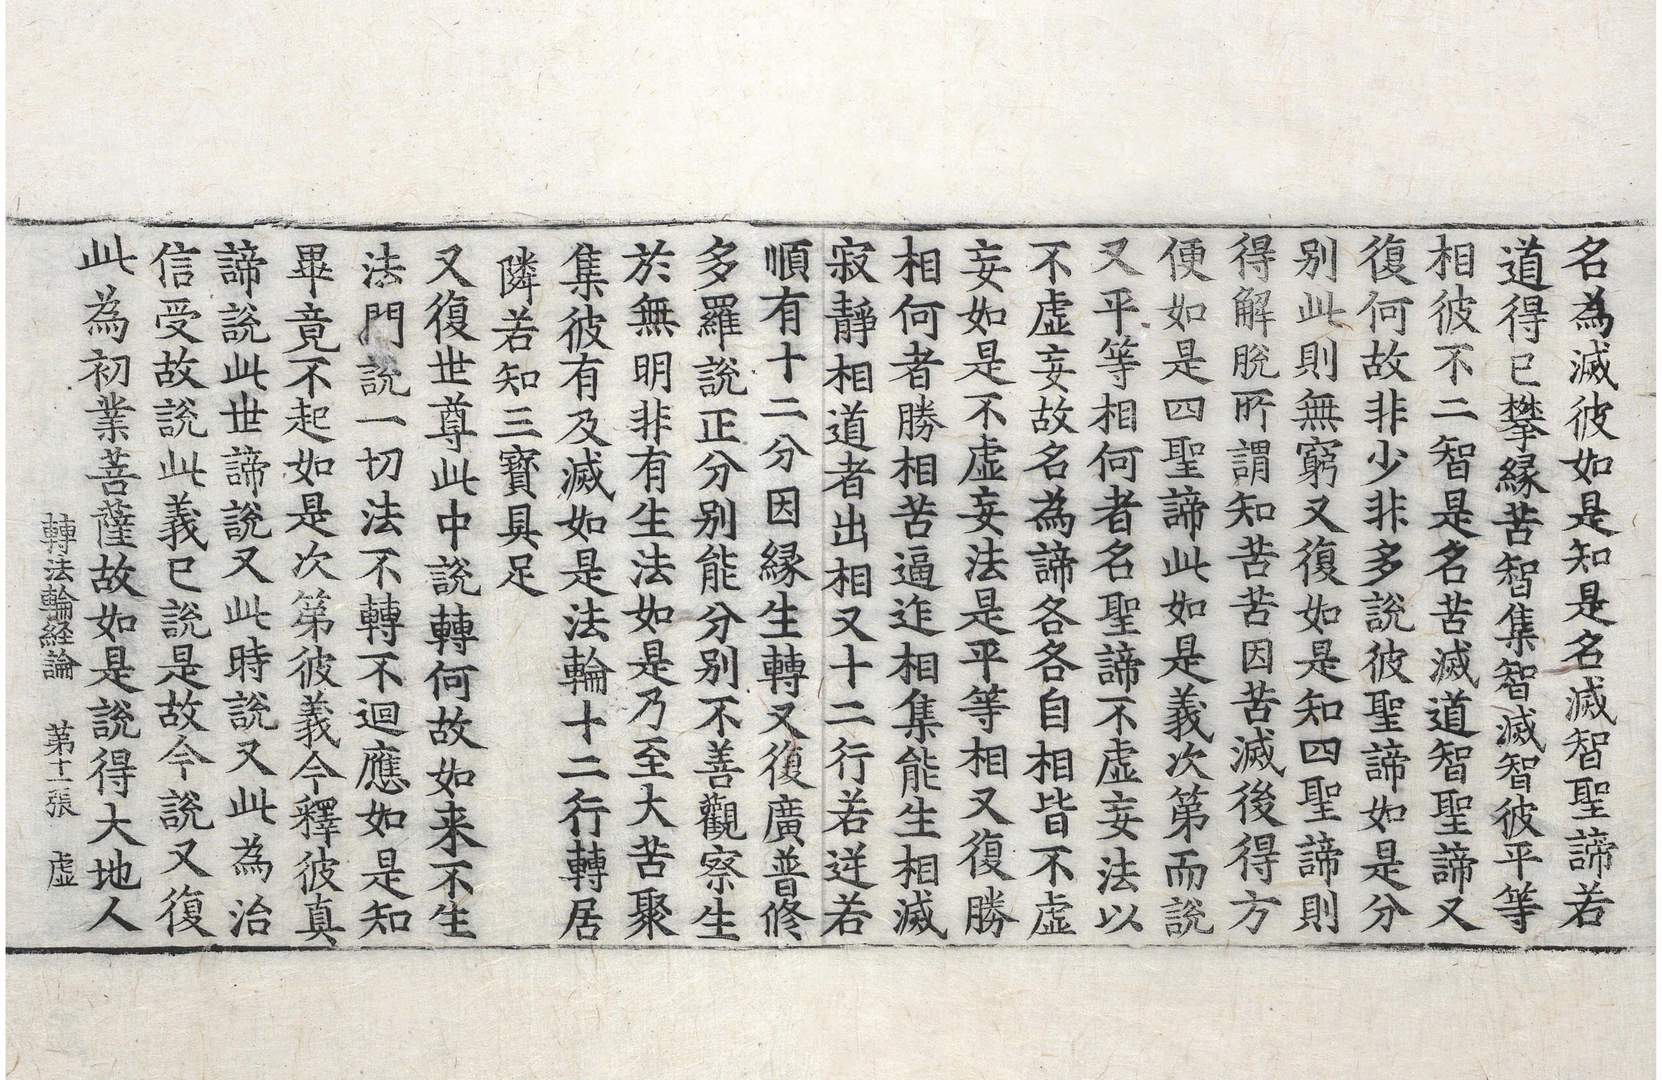 名為滅彼如是知是名滅智聖諦若
道得已攀縁苦智集智滅智彼平等
相彼不二智是名苦滅道智聖諦又
復何故非少非多説彼聖諦如是分
别此則無窮又復如是知四聖諦則
得解脫所謂知苦苦因苦滅後得方
便如是四聖諦此如是義次第而說
又平等相何者名聖諦不虛妄法以
不虛妄故名為諦各各自相皆不虛
妄如是不虛妄法是平等相又復勝
相何者勝相苦逼迮相集能生相滅
寂靜相道者出相又十二行若逆若
順有十二分因縁生轉又復廣普修
多羅説正分别能分别不善觀察生
於無明非有生法如是乃至大苦聚
集彼有及滅如是法輪十二行轉居
隣若知三寶具足
又復世尊此中説轉何故如来不生
法門說一切法不轉不迴應如是知
畢竟不起如是次第彼義今釋彼真
諦説此世諦説又此時説又此為治
信受故説此義已説是故今説又復
此為初業菩薩故如是說得大地人
轉法輪経論　第十一張　虛